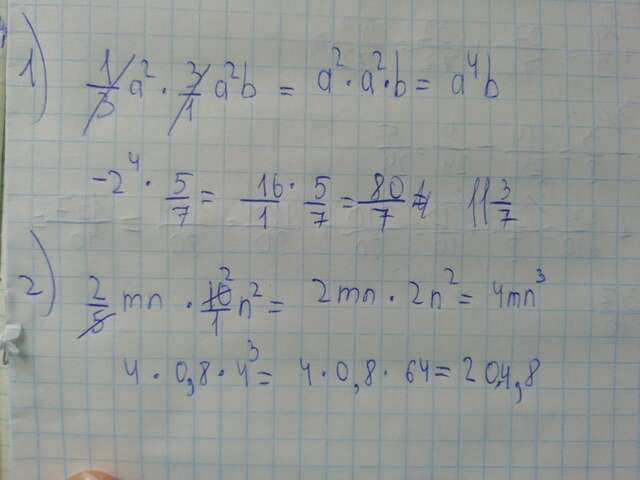 1) 1/3 a² · 3/1 a²b = a² · a² · b = a⁴b
-2⁴ · 5/7 = 16/1 · 5/7 = 80/7 11 3/7
2) 2/5 mn · 10/1 n² = 2mn · 2n² = 4mn³
4 · 0,8 · 4³ = 4 · 0,8 · 64 = 204,8